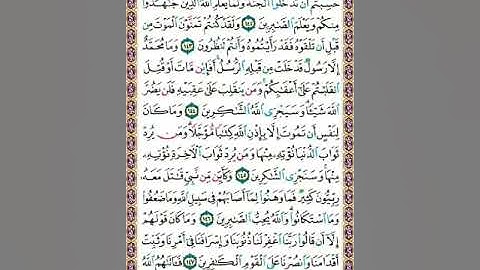 حَسِبْتُمْ أَن تَدْخُلُوا۟ ٱلْجَنَّةَ وَلَمَّا يَعْلَمِ ٱللَّهُ ٱلَّذِينَ جَـٰهَدُوا۟
مِنكُمْ وَيَعْلَمَ ٱلصَّـٰبِرِينَ ١٤٢ وَلَقَدْ كُنتُمْ تَمَنَّوْنَ ٱلْمَوْتَ مِن
قَبْلِ أَن تَلْقَوْهُ فَقَدْ رَأَيْتُمُوهُ وَأَنتُمْ تَنظُرُونَ ١٤٣ وَمَا مُحَمَّدٌ
إِلَّا رَسُولٌ قَدْ خَلَتْ مِن قَبْلِهِ ٱلرُّسُلُ أَفَإِي۟ن مَّاتَ أَوْ قُتِلَ
ٱنقَلَبْتُمْ عَلَىٰٓ أَعْقَـٰبِكُمْ وَمَن يَنقَلِبْ عَلَىٰ عَقِبَيْهِ فَلَن يَضُرَّ
ٱللَّهَ شَيْـًٔا وَسَيَجْزِى ٱللَّهُ ٱلشَّـٰكِرِينَ ١٤٤ وَمَا كَانَ
لِنَفْسٍ أَن تَمُوتَ إِلَّا بِإِذْنِ ٱللَّهِ كِتَـٰبًا مُّؤَجَّلًا وَمَن يُرِدْ
ثَوَابَ ٱلدُّنْيَا نُؤْتِهِۦ مِنْهَا وَمَن يُرِدْ ثَوَابَ ٱلْـَٔاخِرَةِ نُؤْتِهِۦ
مِنْهَا وَسَنَجْزِى ٱلشَّـٰكِرِينَ ١٤٥ وَكَأَيِّن مِّن نَّبِىٍّ قَـٰتَلَ مَعَهُۥ
رِبِّيُّونَ كَثِيرٌ فَمَا وَهَنُوا۟ لِمَآ أَصَابَهُمْ فِى سَبِيلِ ٱللَّهِ وَمَا ضَعُفُوا۟
وَمَا ٱسْتَكَانُوا۟ وَٱللَّهُ يُحِبُّ ٱلصَّـٰبِرِينَ ١٤٦ وَمَا كَانَ قَوْلَهُمْ
إِلَّآ أَن قَالُوا۟ رَبَّنَا ٱغْفِرْ لَنَا ذُنُوبَنَا وَإِسْرَافَنَا فِىٓ أَمْرِنَا وَثَبِّتْ
أَقْدَامَنَا وَٱنصُرْنَا عَلَى ٱلْقَوْمِ ٱلْكَـٰفِرِينَ ١٤٧ فَـَٔاتَىٰهُمُ ٱللَّهُ